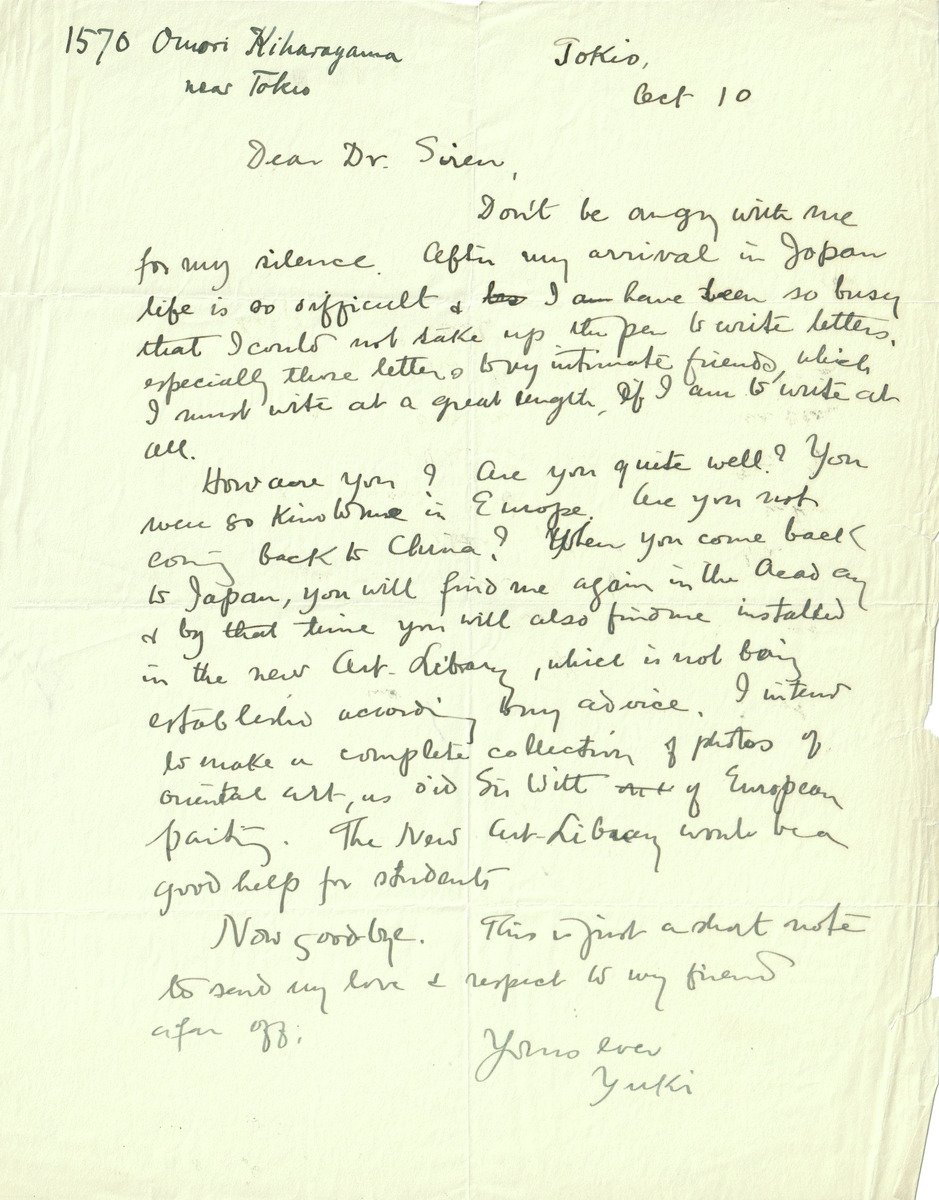 1570 Omori Kiharayama
near Tokio
Tokio,
Oct 10
Dear Dr. Siren,
Don't be angry with me
for my silence. After my arrival in Japan
life is so difficult & I am have been so busy
that I could not take up the pen to write letters,
especially those letters to my intimate friends, which
I must write at a great length, if I am to write at
all.
How are you? Are you quite well? You
were so kind to me in Europe. Are you not
coming back to China? When you come back
to Japan, you will find me again in the Academy
& by that time you will also find me installed
in the new Art-Library, which is not being
established according to my advice. I intend
to make a complete collection of photos of
oriental art, as did Sir Witt of European
painting. The New Art-Library would be a
good help for students
Now good-bye. This is just a short note
to send my love & respect to my friend
afar off.
Yours ever
Yuki